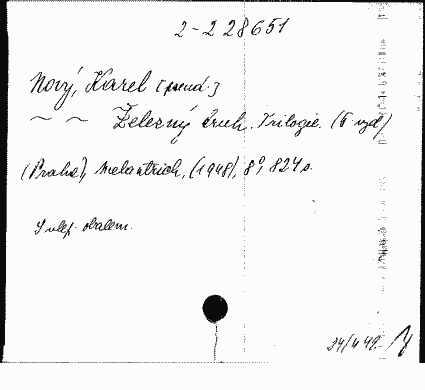 2-228651
Nový, Karel [pseud.]
~ ~ Železný kruh. Trilogie. (5 vyd)
(Praha), Melantrich, (1948), 8°, 824 s.
S ulep. obalem.
24/4 49.